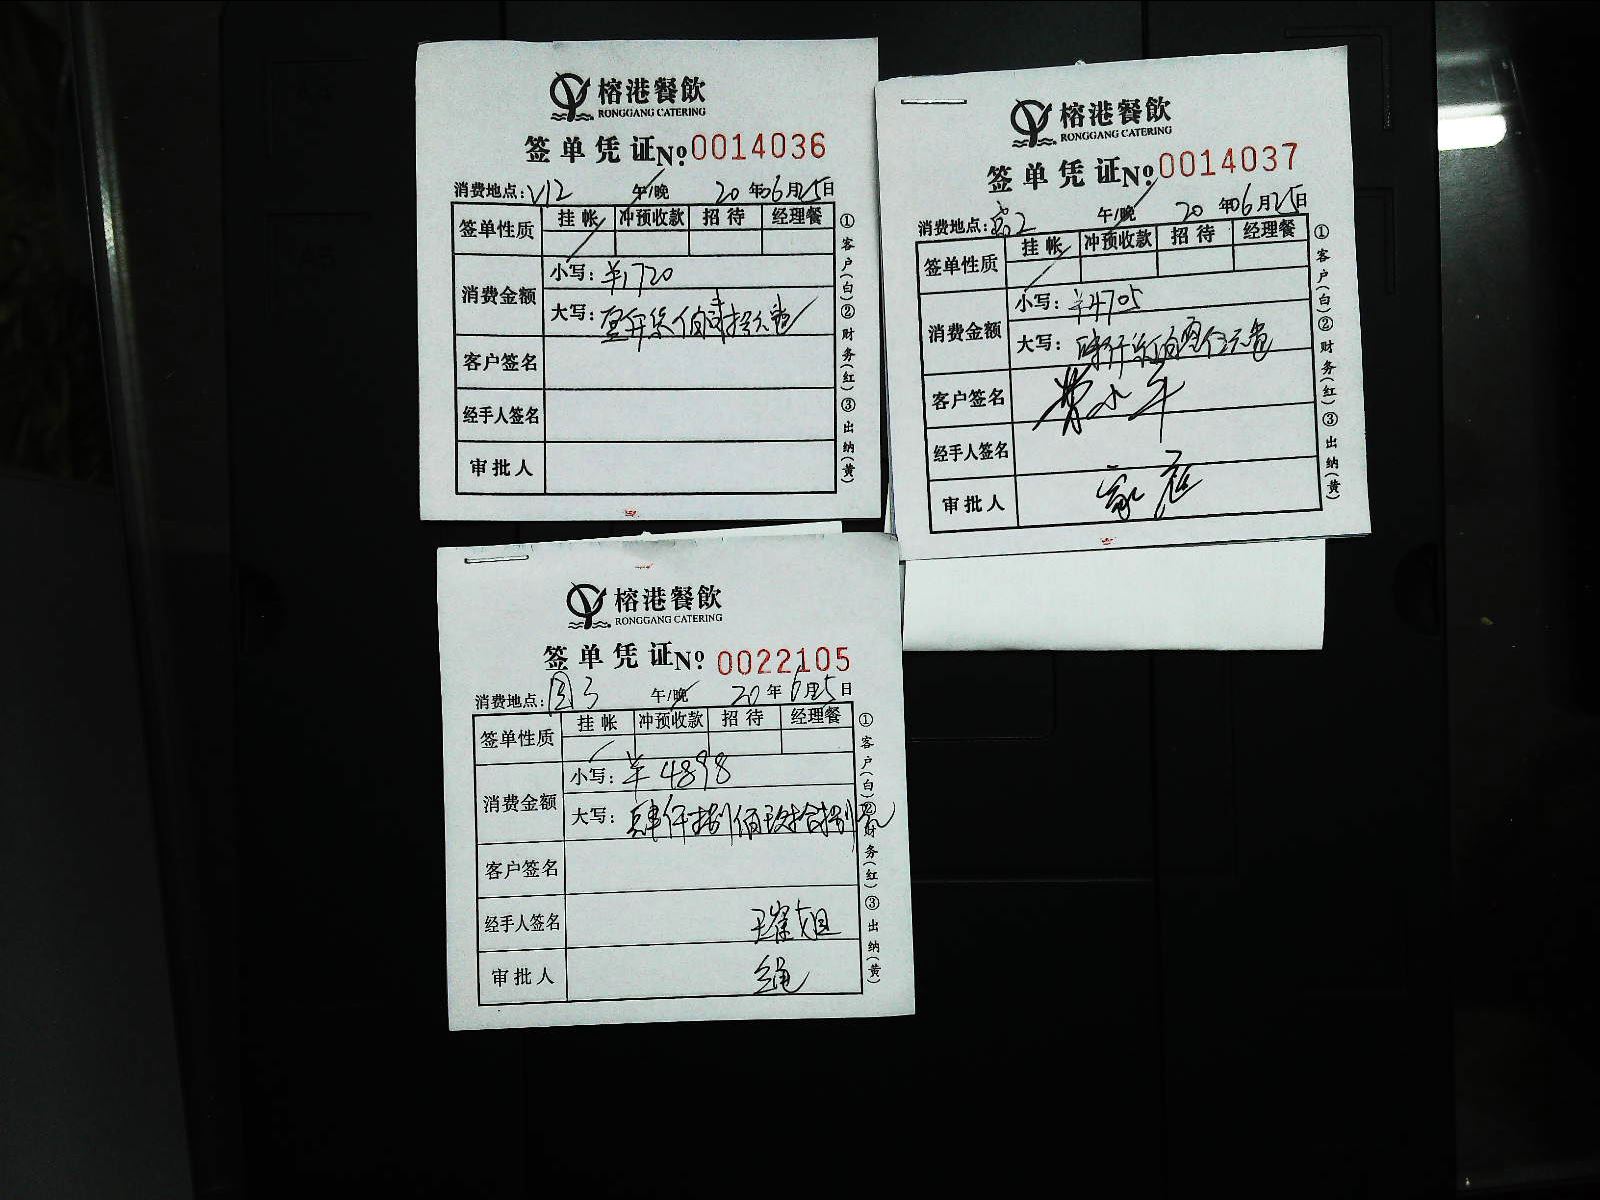 榕港餐飲
RONGGANG CATERING
签单凭证 No 0014036
消费地点: V12 午/晚 20年06月25日
签单性质 挂帐 冲预收款 招待 经理餐
消费金额 小写: ¥1720
大写: 壹仟柒佰贰拾元整
客户签名
经手人签名
审批人
①客户(白)②财务(红)③出纳(黄)
榕港餐飲
RONGGANG CATERING
签单凭证 No 0014037
消费地点: 2 午/晚 20年06月25日
签单性质 挂帐 冲预收款 招待 经理餐
消费金额 小写: ¥4705
大写: 肆仟柒佰零伍元整
客户签名
经手人签名
审批人
①客户(白)②财务(红)③出纳(黄)
榕港餐飲
RONGGANG CATERING
签单凭证 No 0022105
消费地点: 3 午/晚 20年6月25日
签单性质 挂帐 冲预收款 招待 经理餐
消费金额 小写: ¥4898
大写: 肆仟捌佰玖拾捌元
客户签名
经手人签名
审批人 绳
①客户(白)②财务(红)③出纳(黄)